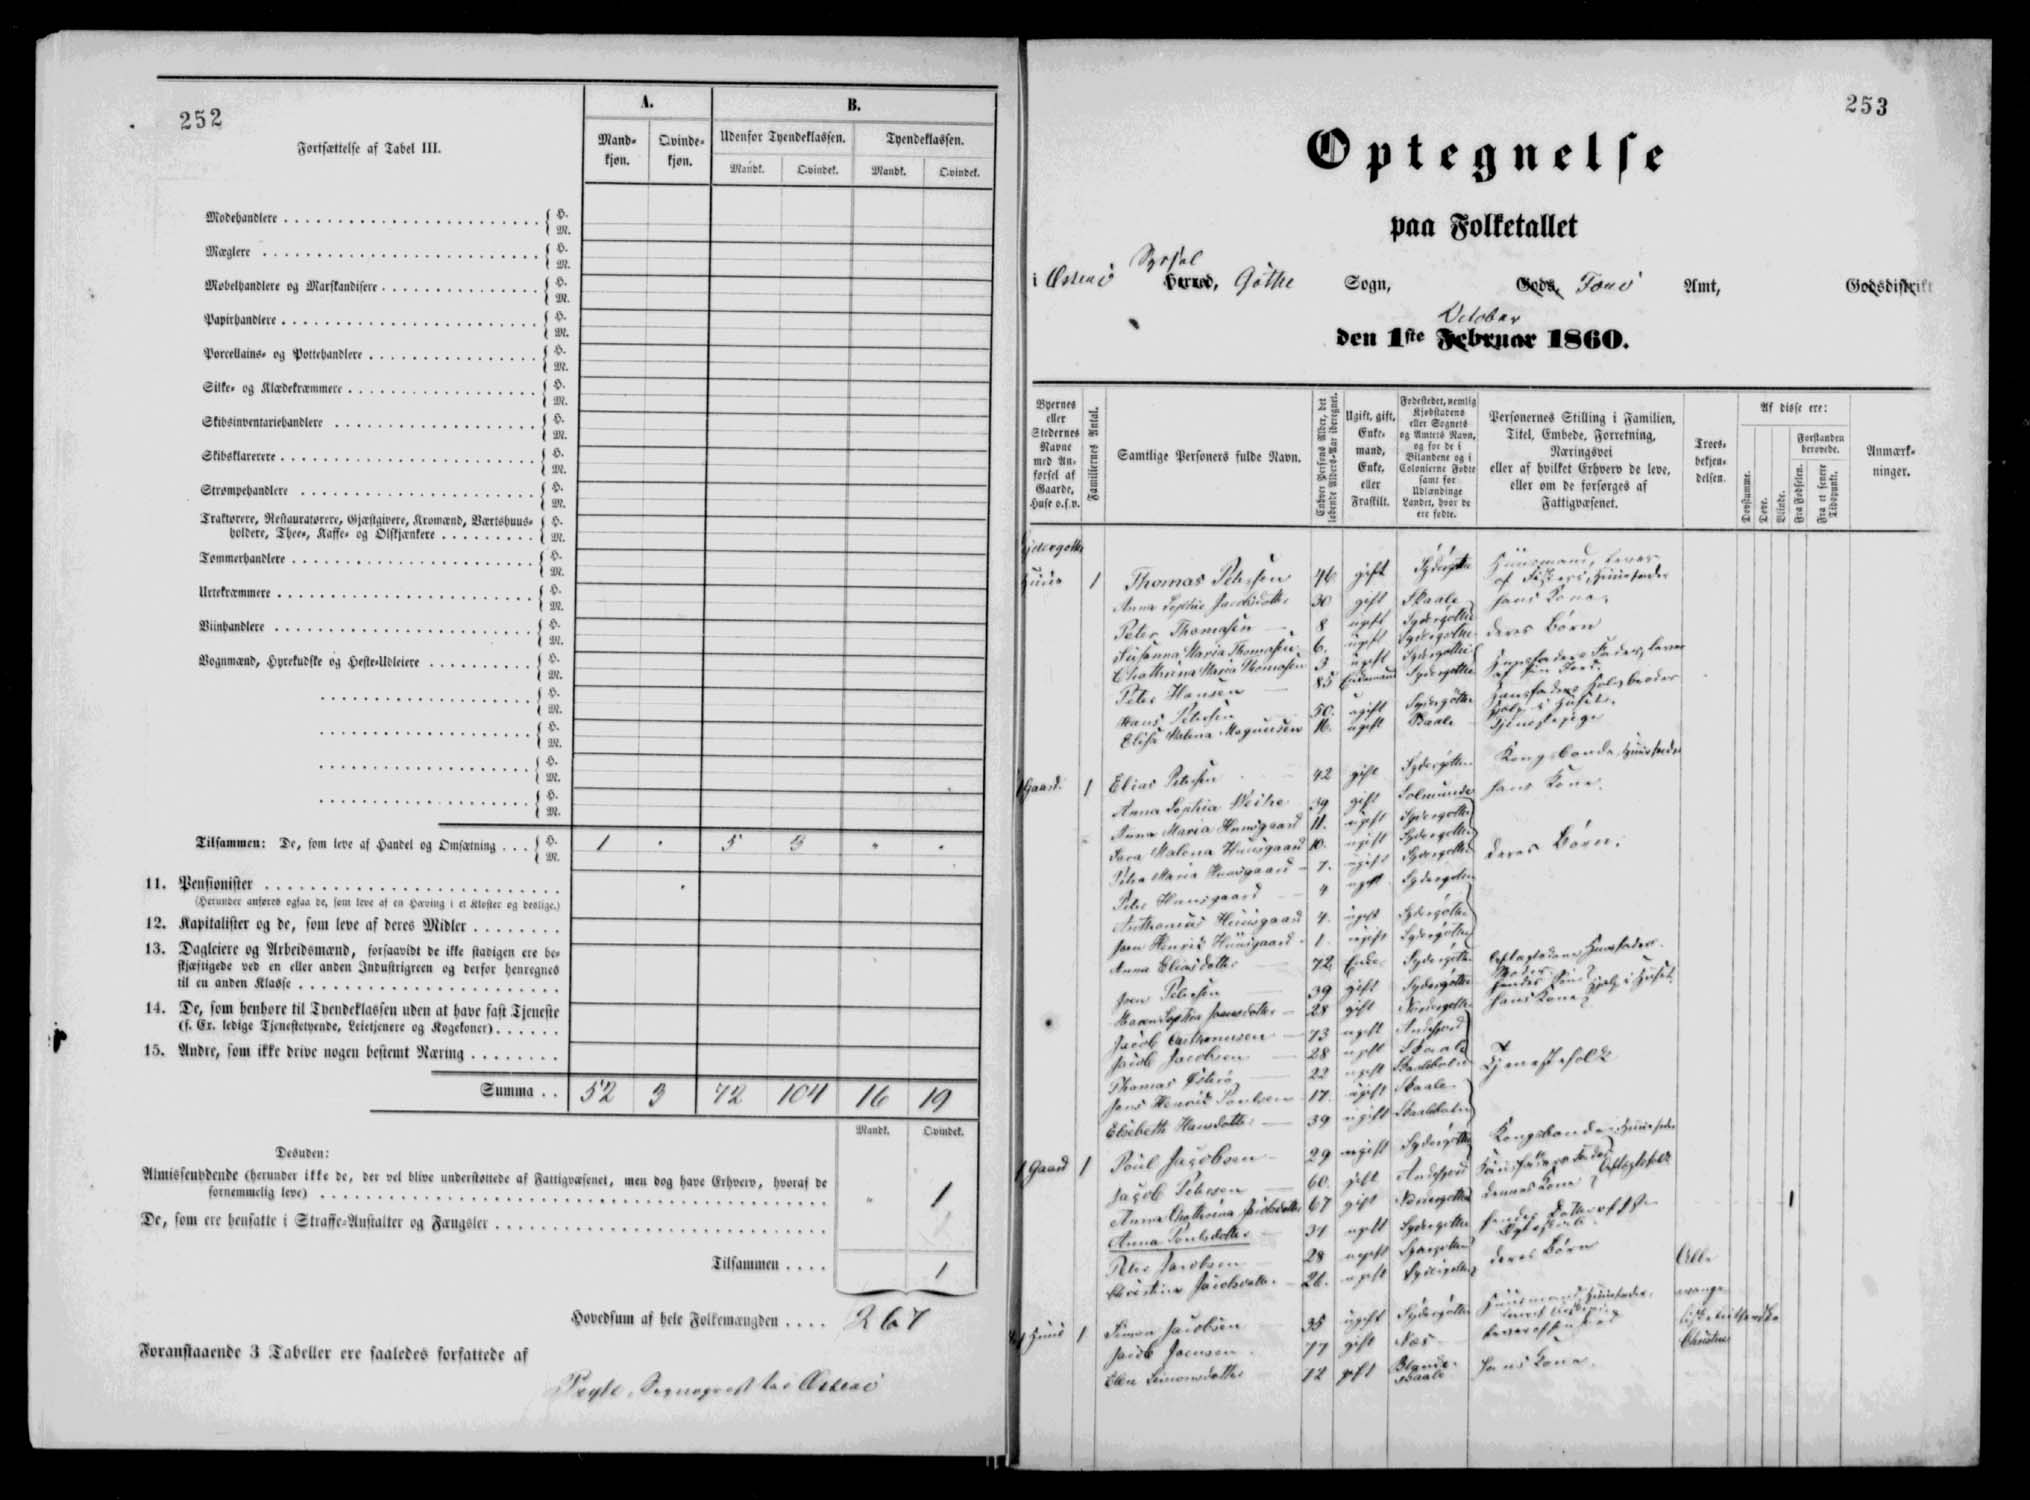 252
Fortsættelse af Tabel III.
A.
B.
Mandkjøn.
Qvindekjøn.
Udenfor Tyendeklassen.
Tyendeklassen.
Mandk.
Qvindek.
Mandk.
Qvindek.
Modehandlere { H. M.
Mæglere { H. M.
Møbelhandlere og Marskandisere { H. M.
Papirhandlere { H. M.
Porcellains- og Pottehandlere { H. M.
Silke- og Klædekræmmere { H. M.
Skibsinventariehandlere { H. M.
Skibsklarerere { H. M.
Strømpehandlere { H. M.
Traktører, Restauratører, Gjæstgivere, Kromænd, Værtshuus-
holdere, Thee-, Kaffe- og Ølskjænkere { H. M.
Tømmerhandlere { H. M.
Urtekræmmere { H. M.
Viinhandlere { H. M.
Vognmænd, Hyrekudske og Heste-Udleiere { H. M.
{ H. M.
{ H. M.
{ H. M.
{ H. M.
Tilsammen: De, som leve af Handel og Omsætning { H. M. 1 . 5 3 " .
11. Pensionister
(Herunder anføres ogsaa de, som leve af en Hæving i et Kloster og deslige.)
12. Kapitalister og de, som leve af deres Midler
13. Dagleiere og Arbeidsmænd, forsaavidt de ikke stadigen ere be-
skjæftigede ved en eller anden Industrigreen og derfor henregnes
til en anden Klasse
14. De, som henhøre til Tyendeklassen uden at have fast Tjeneste
(f. Ex. ledige Tjenestetyende, Leietjenere og Kogekoner)
15. Andre, som ikke drive nogen bestemt Næring
Summa . . 52 3 72 104 16 19
Mandk. Qvindek.
Desuden:
Almissenydende (herunder ikke de, der vel blive understøttede af Fattigvæsenet, men dog have Erhverv, hvoraf de
fornemmelig leve) " 1
De, som ere hensatte i Straffe-Anstalter og Fængsler
Tilsammen . . . . 1
Hovedsum af hele Folkemængden . . . . 267
Foranstaaende 3 Tabeller ere saaledes forfattede af
253
Optegnelse
paa Folketallet
Syssel
i Østerø Herred, Gøthe Sogn, Gods, Færø Amt, Godsdistrikt
October
den 1ste Februar 1860.
Byernes eller Stedernes Navne med Anførsel af Gaarde, Huse o.s.v.
Familiernes Antal.
Samtlige Personers fulde Navn.
Enhver Persons Alder, det løbende Alders-Aar iberegnet.
Ugift, gift, Enkemand, Enke, eller Fraskilt.
Fødestedet, nemlig Kjøbstadens eller Sognets og Amtets Navn, og for de i Bilandene og i Colonierne Fødte samt for Udlændinge Landet, hvor de ere fødte.
Personernes Stilling i Familien, Titel, Embede, Forretning, Næringsvei eller af hvilket Erhverv de leve, eller om de forsørges af Fattigvæsenet.
Troesbekjendelsen.
Af disse ere:
Døvstumme.
Døve.
Blinde.
Forstanden berøvede.
Fra Fødselen.
Fra et senere Tidspunkt.
Anmærkninger.
Huus 1 Thomas Petersen 46 gift Sydergøthe
Anna Sophie Jacobsdatter 30 gift Skaale hans Kone
Peter Thomasen 8 ugift Sydergøthe deres Børn
Susanna Maria Thomasen 6. ugift Sydergøthe
Chathrina Maria Thomasen 3 ugift Sydergøthe
Peter Hansen 85 Enkemand Sydergøthe
Hans Petersen 50. ugift Sydergøthe
Elisa Malena Magnussen 16. ugift Skaale Tjenestepige
1 Gaard. 1 Elias Petersen 42 gift Sydergøthe Kongsbonde, Huusfader
Anna Sophia Weihe 39 gift Solmunde hans Kone
Anna Maria Huusgaard 11. ugift Sydergøthe
Sara Malena Huusgaard 10. ugift Sydergøthe deres Børn.
Petra Maria Huusgaard 7. ugift Sydergøthe
Peter Huusgaard 4 ugift Sydergøthe
Anthonius Huusgaard 4. ugift Sydergøthe
Joen Henrik Huusgaard 1. ugift Sydergøthe
Anna Eliasdatter 72 Enke Sydergøthe
Joen Petersen 39 gift Sydergøthe
Maren Sophia Joensdatter 28 gift Nordergøthe hans Kone
Jacob 73 ugift Andefjord
Jacob Jacobsen 28 ugift Skaale Tjenestefolk
Thomas Østerø 22 ugift
Jens Henrik Poulsen 17. ugift Skaale
Elsebeth Hansdatter 39 ugift
1 Gaard 1 Poul Jacobsen 29 ugift Sydergøthe Kongsbonde, Huusfader
Jacob Petersen 60. gift Andefjord
Anna Chathrina Jacobsdatter 67 gift Nordergøthe dennes Kone
Anna Poulsdatter 37 ugift Sydergøthe 1
Peter Jacobsen 28 ugift Sydergøthe deres Børn
Christina Jacobsdatter 26. ugift Sydergøthe
Huus 1 Simon Jacobsen 35 ugift Sydergøthe
Jacob Joensen 77 gift Næs
Elen Simonsdatter 72 gift Skaale hans Kone.
Alle
evange
lisk lutherske
Christne